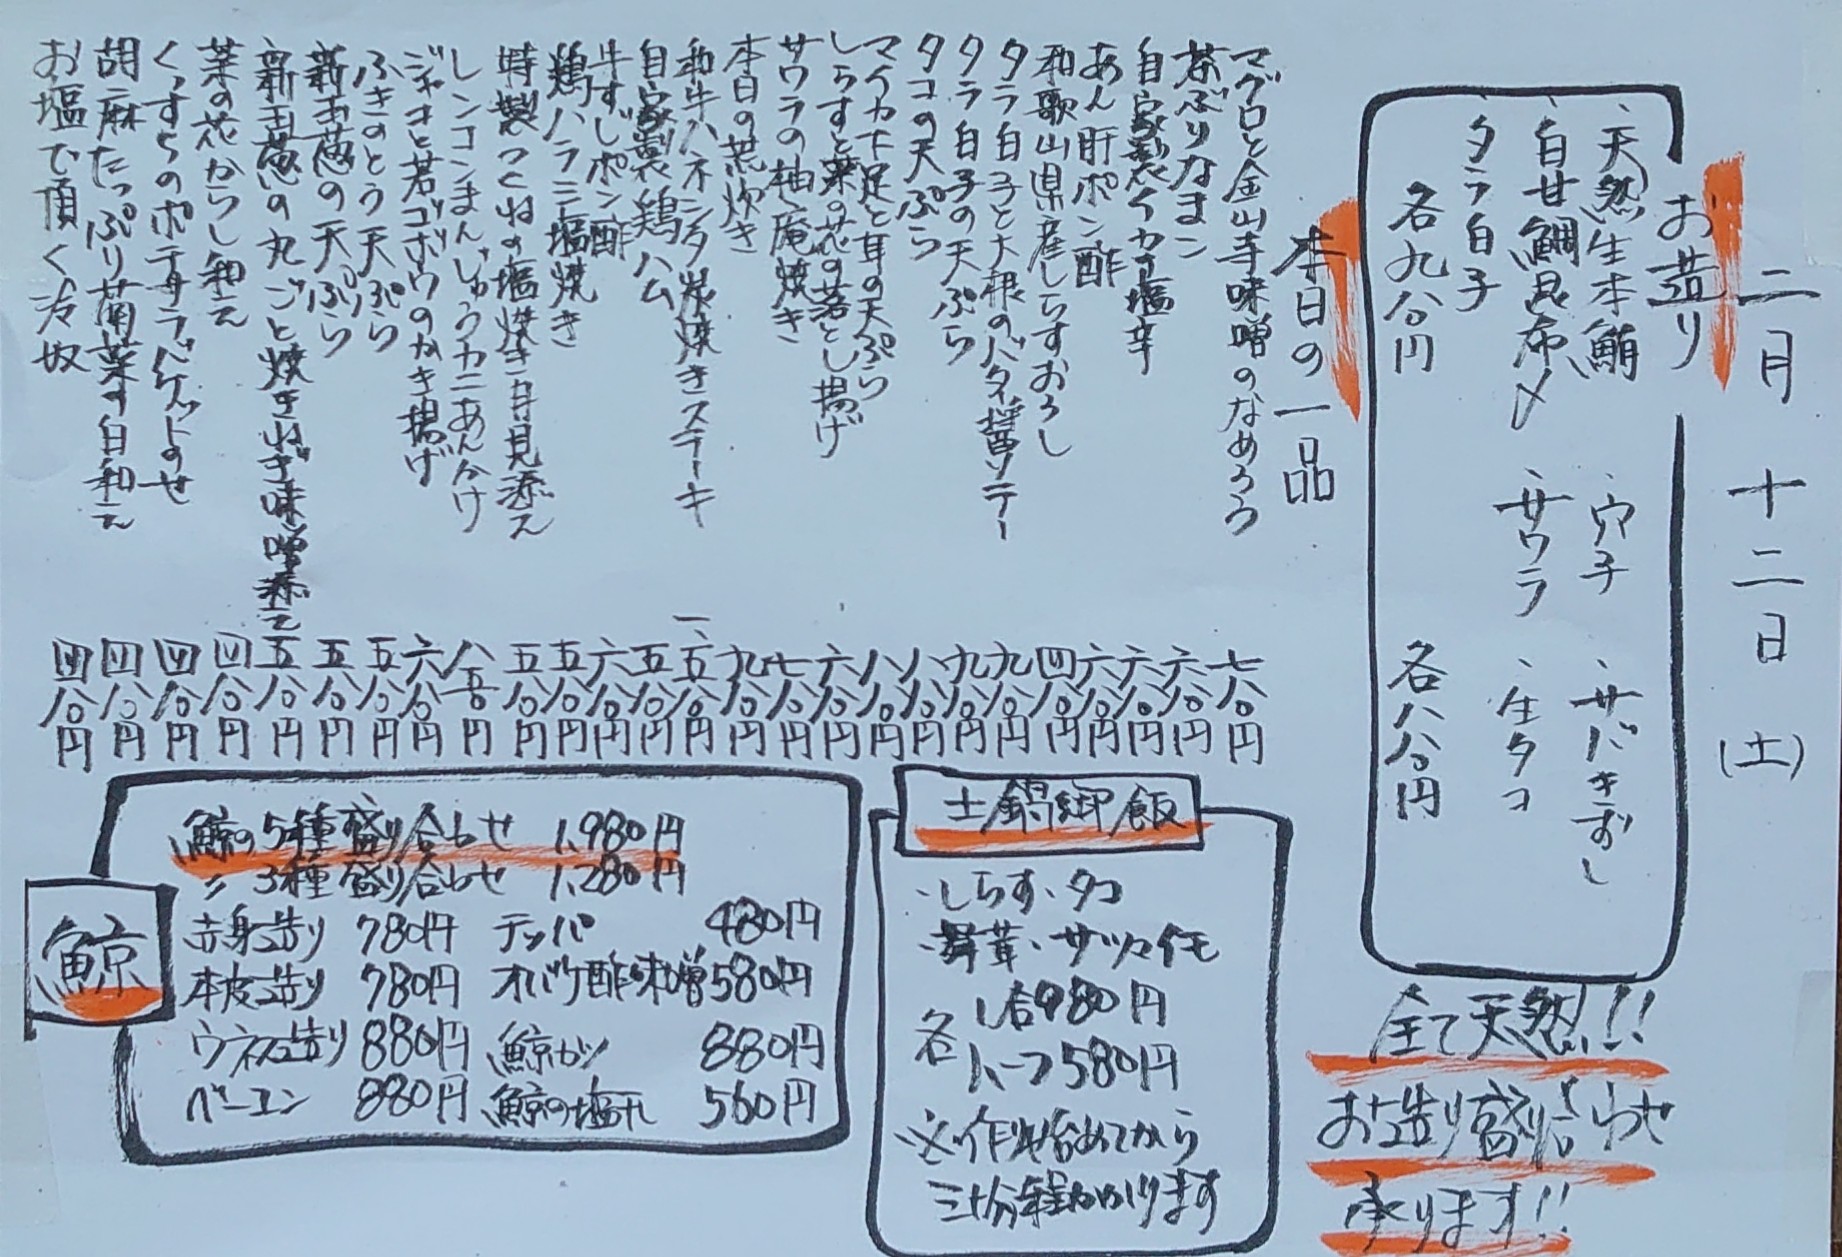 二月十二日(土)
お造り
、天然生本鮪
、白甘鯛昆布〆
、タラ白子
各九八〇円
、穴子
、サバきずし
、サワラ
、生タコ
各八八〇円
全て天然!!
お造り盛り合わせ
承ります!!
本日の一品
マグロと金山寺味噌のなめろう 七八〇円
茶ぶりなまこ 六八〇円
自家製イカの塩辛 六八〇円
あん肝ポン酢 六八〇円
和歌山県産しらすおろし 四八〇円
タラ白子と大根のバタ醤ソテー 九八〇円
タラ白子の天ぷら 九八〇円
タコの天ぷら 八八〇円
マイカ下足と耳の天ぷら 八八〇円
しらすと菜の花の落とし揚げ 六八〇円
サワラの柚庵焼き 七八〇円
本日の荒炊き 九八〇円
和牛ハネシタ炭焼きステーキ 一、五八〇円
自家製鶏ハム 五八〇円
牛すじポン酢 六八〇円
鶏ハラミ塩焼き 五八〇円
特製つくねの塩焼き月見添え 五八〇円
レンコンまんじゅうカニあんかけ 八五〇円
ジャコと若ゴボウのかき揚げ 六八〇円
ふきのとう天ぷら 五八〇円
新玉葱の天ぷら 五八〇円
新玉葱の丸ごと焼きねぎ味噌添え 五八〇円
菜の花からし和え 四八〇円
くずしらのポテサラバケットのせ 四八〇円
胡麻たっぷり菊菜の白和え 四八〇円
お塩で頂く冷奴 四八〇円
土鍋御飯
・しらす・タコ
・舞茸・サツマイモ
各 1合980円
ハーフ580円
※作り始めてから
三十分程かかります
鯨
鯨の5種盛り合わせ 1,980円
〃 3種盛り合わせ 1,280円
赤身造り 780円 テッパ 480円
本皮造り 780円 オバケ酢味噌 580円
ウネス造り 880円 鯨カツ 880円
ベーコン 880円 鯨の塩干し 560円